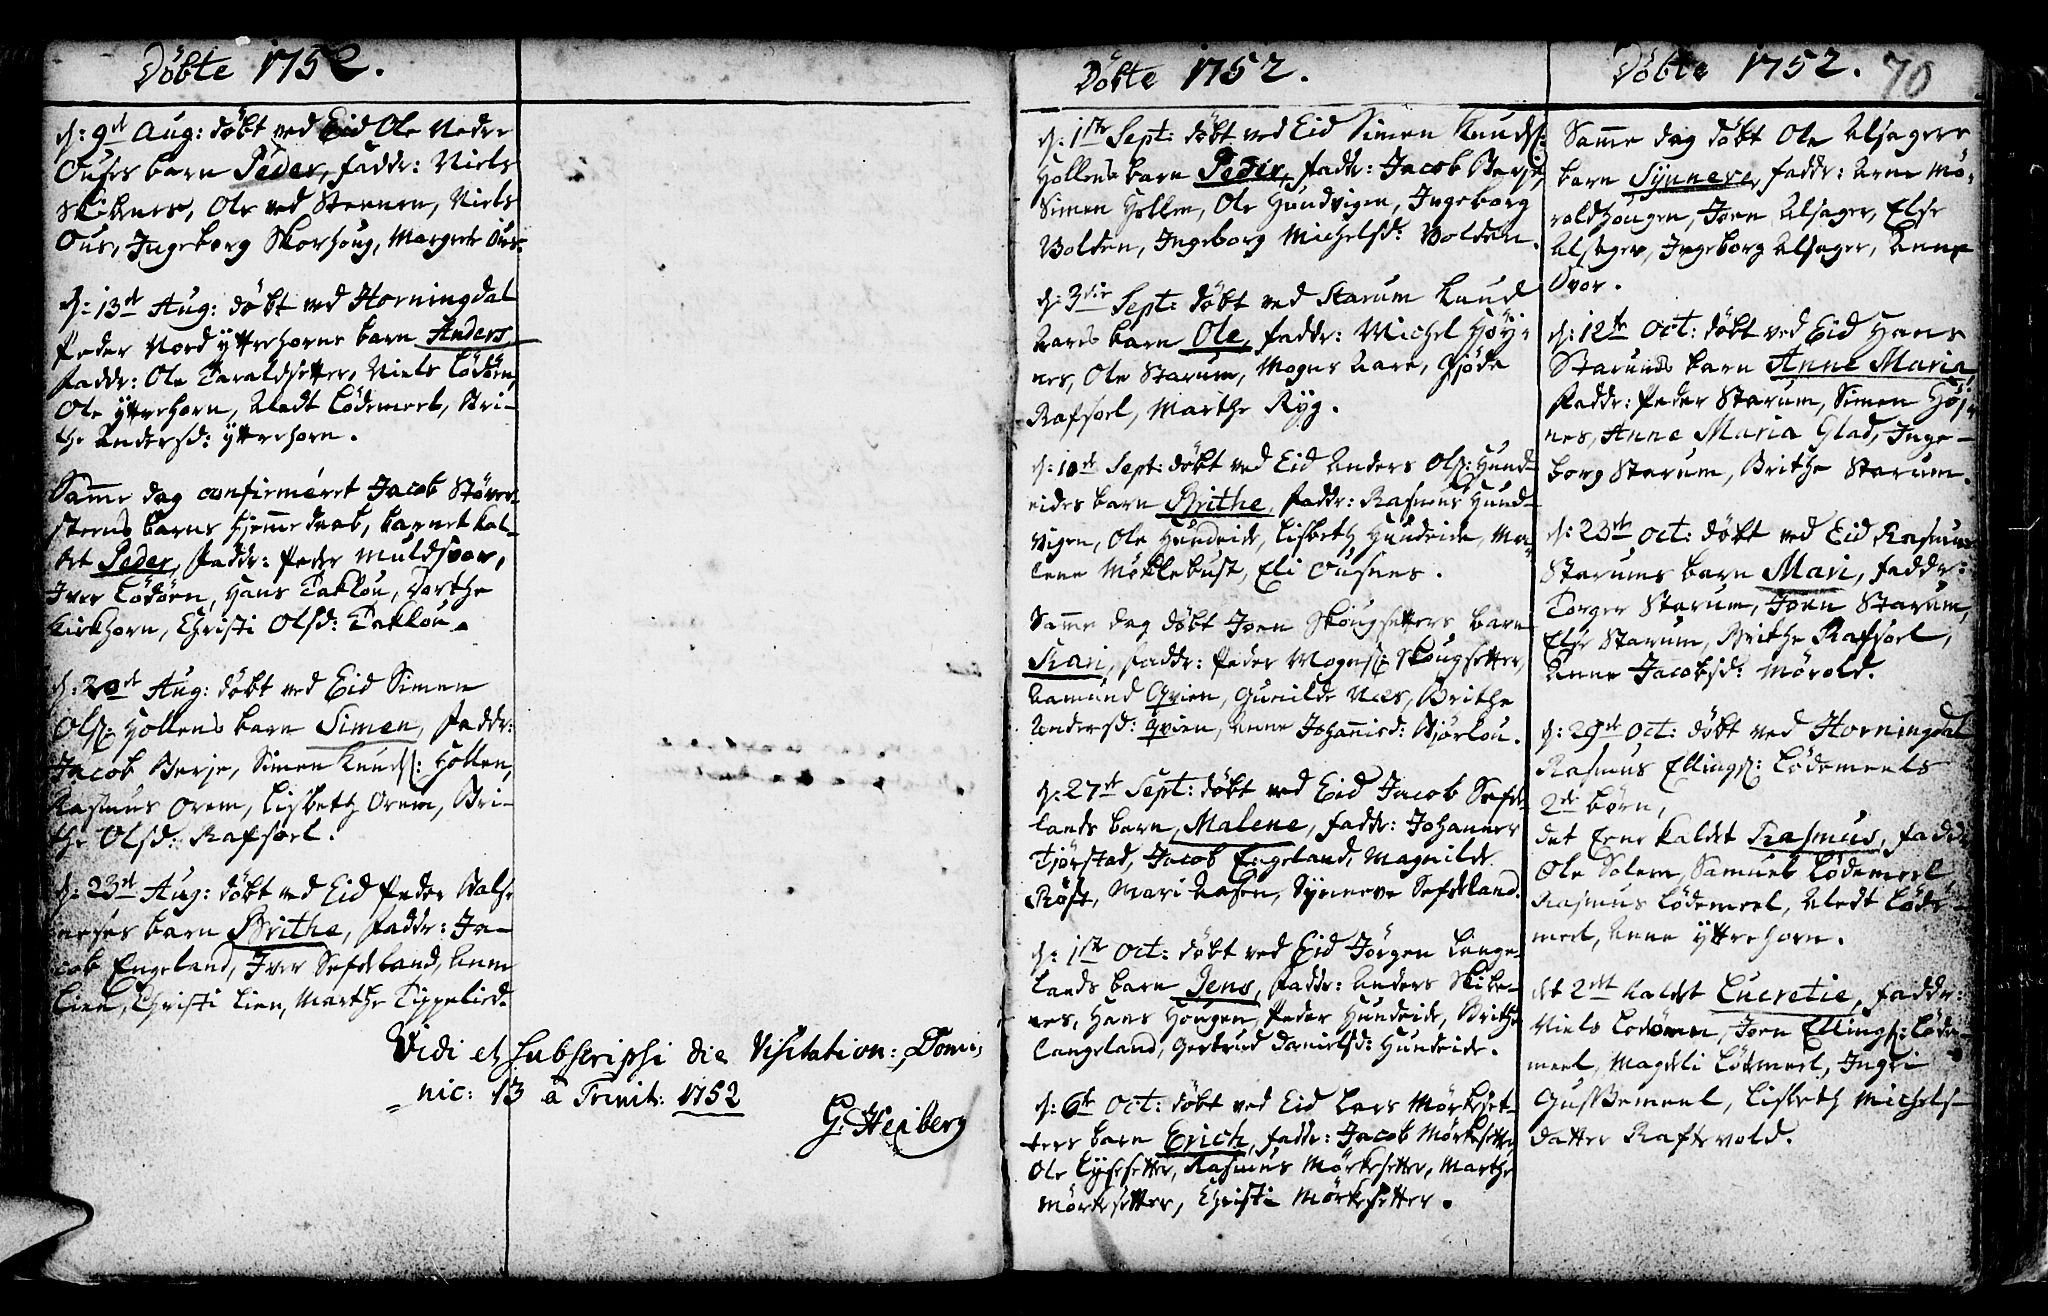 Döbte 1752.
d: 9de Aug: döbt ved Eid Ole Nedre
Ouses barn Peder, faddr: Niels
Skibnes, Ole ved Steenen, Niels
Ous, Ingeborg Skorhoug, Margrete Ous.
d: 13de Aug: döbt ved Horningdal
Peder Nord yttrehorns barn Anders
faddr: Ole Taraldsetter, Niels Lödöen,
Ole yttrehorn, Aledt Lödemeel, Bri-
the Andersd: yttrehorn.
Samme dag confirmeret Jacob Störe-
steens barns hjemmedaab, barnet kal-
det Peder, faddr: Peder Muldsvor,
Iver Lödöen, Hans Taklou, Dorthe
Kirkhorn, Christi Olsd: Taklou.
d: 20de Aug: döbt ved Eid Simen
Ols: Hollens barn Simen, faddr:
Jacob Berje, Simen Knuds: Hollen,
Rasmus Orem, Lisbeth Orem, Bri-
the Olsd: Rafsoel.
d: 23de Aug: döbt ved Eid Peder
barn Brithe, faddr: Ja-
cob Engeland, Iver Sefdeland, Anne
Lien, Christi Lien, Marthe Tippelied.
Vidi et subscripsi die Visitation: Domi-
nic: 13 a Trinit: 1752
G: Heiberg
Döbte 1752.
d: 1ste Sept: döbt ved Eid Simen Knuds:
Hollens barn Peder, faddr: Jacob Berje,
Simen Hollen, Ole Hundvigen, Ingeborg
Bolden, Ingeborg Michelsd: Bolden.
d: 3die Sept: döbt ved Starum Knud
Aares barn Ole, faddr: Michel Höy-
nes, Ole Starum, Mogns Aare,
Rafsoel, Marthe Ryg.
d: 10de Sept: döbt ved Eid Anders Ols: Hund-
eides barn Brithe, faddr: Rasmus Hund-
vigen, Ole Hundeide, Lisbeth Hundeide, Ma-
lene Möklebust, Eli Ousnes.
Samme dag döbt Joen Skougsetters barn
Kari, faddr: Peder Mogns: Skougsetter,
Aamund Qvien, Gunilde Nees, Brithe
Andersd: Qvien, Anne Johannisd: Björlou.
d: 27de Sept: döbt ved Eid Jacob Sefde-
lands barn Malene, faddr: Johannes
Tjörstad, Jacob Engeland, Magnilde
Röst, Mari Aasen, Synneve Sefdeland.
d: 1ste Oct: döbt ved Eid Jörgen Lange-
lands barn Jens, faddr: Anders Skibe-
nes, Hans Hougen, Peder Hundeide, Brithe
Langeland, Gertrud Danielsd: Hundeide.
d: 6te Oct: döbt ved Eid Lars Mörkeset-
ters barn Erich, faddr: Jacob Mörkesetter,
Ole Lysesetter, Rasmus Mörkesetter, Marthe
Mörkesetter, Christi Mörkesetter.
Döbte 1752. 70
Samme dag döbt Ole Alsagers
barn Synneve, faddr: Arne Mö-
roldhougen, Joen Alsager, Else
Alsager, Ingeborg Alsager, Anne
Svor.
d: 12te Oct: döbt ved Eid Hans
Starums barn Anne Maria
faddr: Peder Starum, Simen Höj-
nes, Anne Maria Glad, Inge-
borg Starum, Brithe Starum.
d: 23de Oct: döbt ved Eid Rasmus
Starums barn Mari, faddr:
Torger Starum, Joen Starum,
Else Starum, Brithe Rafsoel,
Anne Jacobsd: Mörold.
d: 29de Oct: döbt ved Horningdal
Rasmus Ellings: Lödemeels
2de börn,
det Ene kaldet Rasmus, faddr
Ole Solem, Samuel Lödemeel
Rasmus Lödemeel, Aledt Löde-
meel, Anne yttrehorn.
det 2det kaldet Lucretie, faddr:
Niels Lodöen, Joen Ellings: Löde-
meel, Magdeli Lödemeel, Ingri
Gusdemeel, Lisbeth Michels-
datter Raftevold.